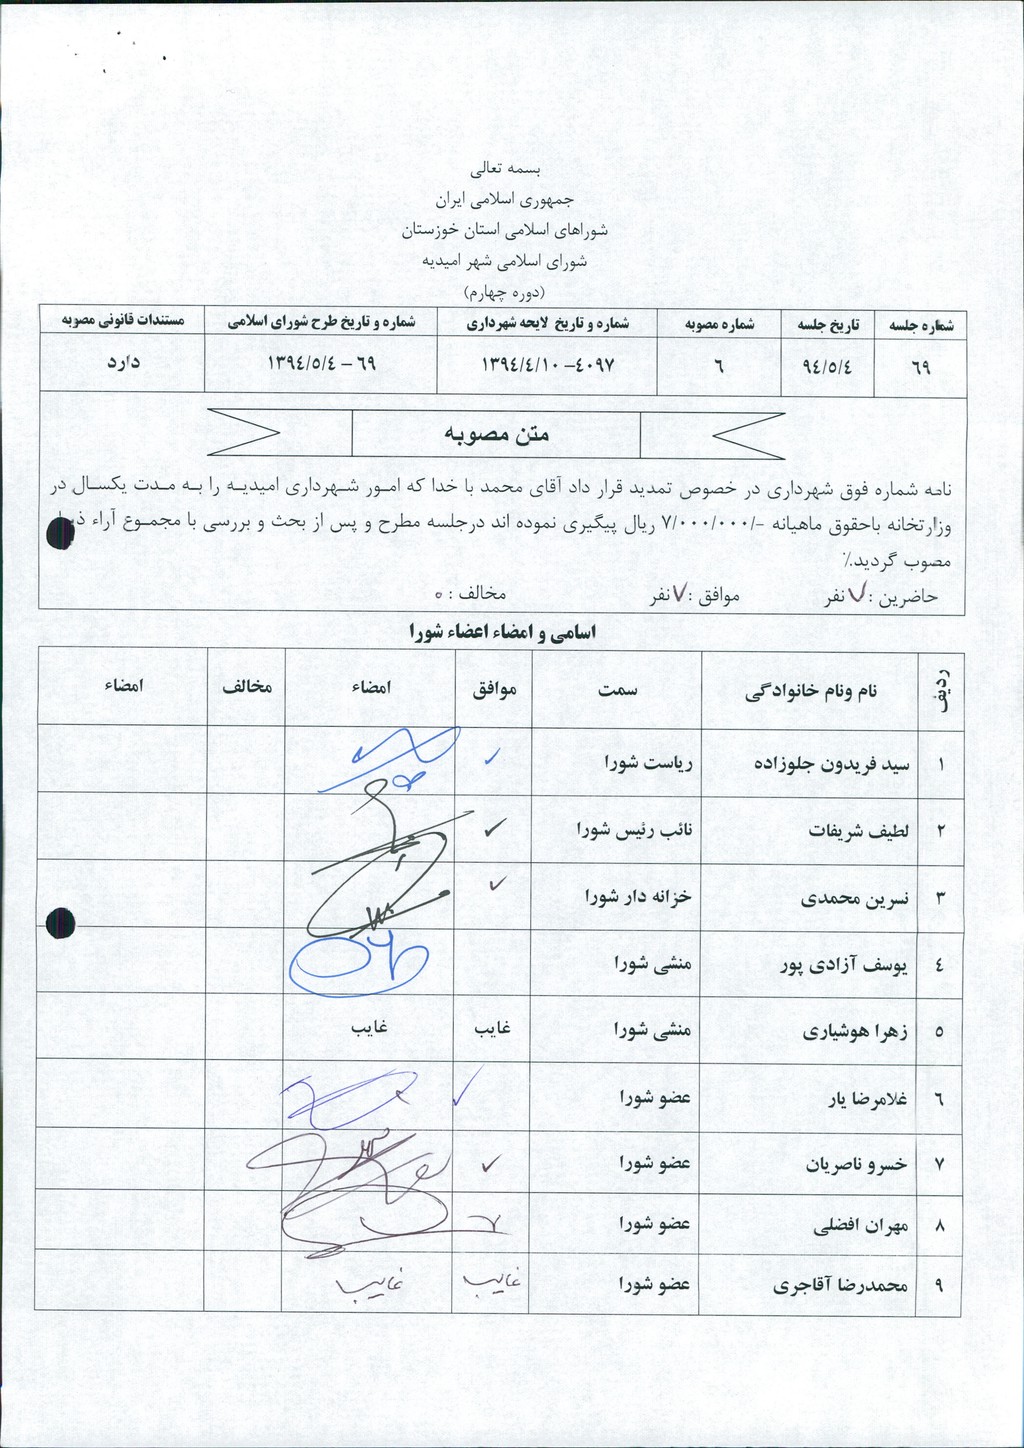 بسمه تعالی
جمهوری اسلامی ایران
شوراهای اسلامی استان خوزستان
شورای اسلامی شهر امیدیه
(دوره چهارم)
شماره جلسه تاریخ جلسه شماره مصوبه شماره و تاریخ لایحه شهرداری شماره و تاریخ طرح شورای اسلامی مستندات قانونی مصوبه
٦٩ ٩٤/٥/٤ ٦ ٤٠٩٧-١٣٩٤/٤/١٠ ٦٩ – ١٣٩٤/٥/٤ دارد
متن مصوبه
نامه شماره فوق شهرداری در خصوص تمدید قرار داد آقای محمد با خدا که امور شهرداری امیدیه را به مدت یکسال در
وزارتخانه باحقوق ماهیانه -/٧/٠٠٠/٠٠٠ ریال پیگیری نموده اند درجلسه مطرح و پس از بحث و بررسی با مجموع آراء
مصوب گردید.٪
حاضرین :٧ نفر موافق :٧ نفر مخالف : ٥
اسامی و امضاء اعضاء شورا
ردیف نام ونام خانوادگی سمت موافق امضاء مخالف امضاء
١ سید فریدون جلوزاده ریاست شورا ✓
٢ لطیف شریفات نائب رئیس شورا ✓
٣ نسرین محمدی خزانه دار شورا ✓
٤ یوسف آزادی پور منشی شورا
٥ زهرا هوشیاری منشی شورا غایب غایب
٦ غلامرضا یار عضو شورا ✓
٧ خسرو ناصریان عضو شورا ✓
٨ مهران افضلی عضو شورا ✓
٩ محمدرضا آقاجری عضو شورا غایب غایب